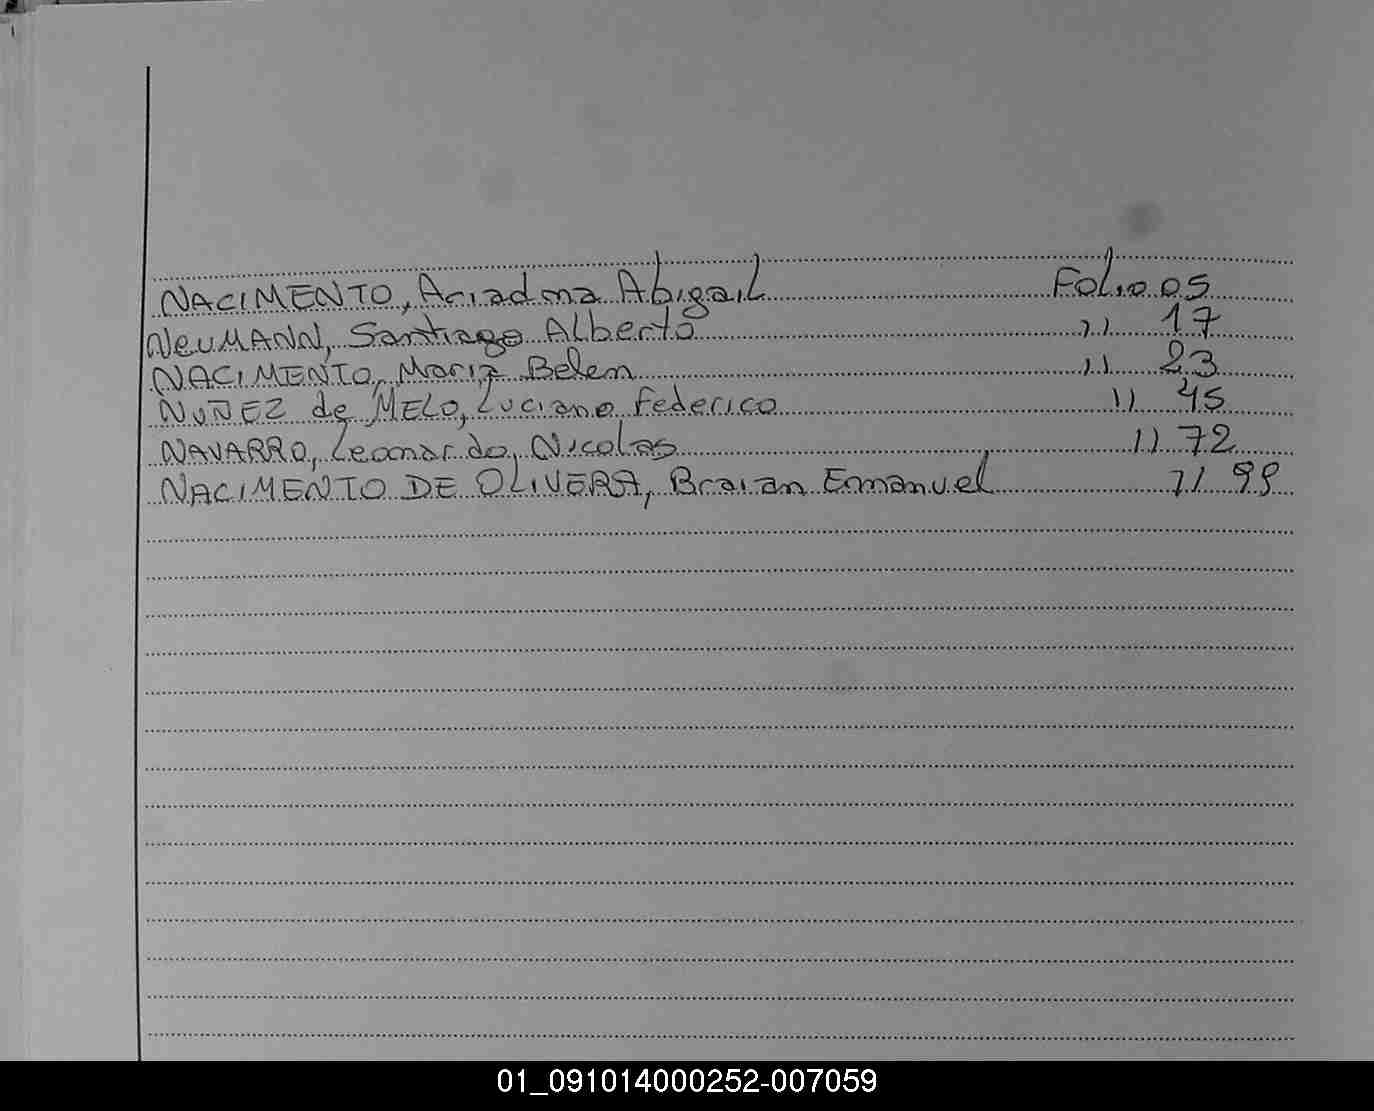 NACIMENTO, Ariadna Abigail Folio 05
NeuMANN, Santiago Alberto " 17
NACIMENTO, Maria Belen " 23
NUÑEZ de MELO, Luciano Federico " 45
NAVARRO, Leonardo Nicolas " 72
NACIMENTO DE OLIVERA, Braian Emmanuel " 99
01_091014000252-007059